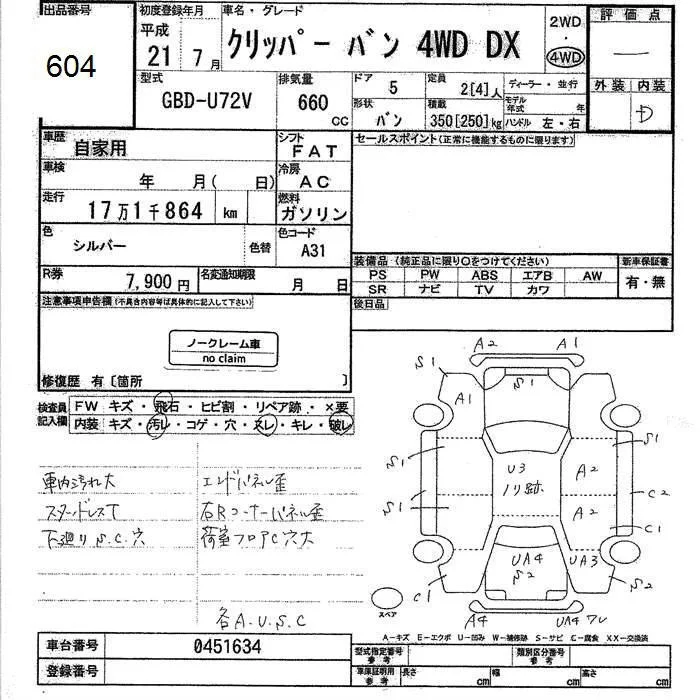 出品番号
604
初度登録年月
平成
21年 7月
車名・グレード
クリッパー バン 4WD DX
2WD
・
4WD
評価点
―
外装 内装
D
型式
GBD-U72V
排気量
660 CC
ドア
5
定員
2[4]人
ディーラー・並行
形状
バン
積載
350[250]kg
モデル年式 年
ハンドル 左・右
車歴
自家用
シフト
FAT
車検
年 月( 日)
冷房
AC
走行
17万1千864 km
燃料
ガソリン
色
シルバー
色替
色コード
A31
R券
7,900円
名変通知期限
月 日
セールスポイント(正常に機能するものに限ります)
装備品 (純正品に限り○をつけてください)
新車保証書
PS PW ABS エアB AW
SR ナビ TV カワ
有・無
後日品
注意事項申告欄(不具合内容等は具体的に記入して下さい)
ノークレーム車
no claim
修復歴 有〔箇所 〕
検査員記入欄
FW キズ・飛石・ヒビ割・リペア跡・×要
内装 キズ・汚レ・コゲ・穴・スレ・キレ・破レ
車内汚れ大 エンドパネル歪
スタッドレスT 右Rコーナーパネル歪
下廻りS.C.穴 荷室フロアC穴大
各A.U.S.C
A2 A1
S1 S1
A1
S1 S1
U3 A2
ノリ跡 C2
S1 A2
C1
UA4 UA3
S2
C1 S2
スペア
A4 UA4ワレ
A-キズ E-エクボ U-凹み W-補修跡 S-サビ C-腐食 XX-交換済
車台番号
0451634
登録番号
型式指定番号 参考
類別区分番号 参考
車庫証明用 参考
長さ cm 幅 cm 高さ cm